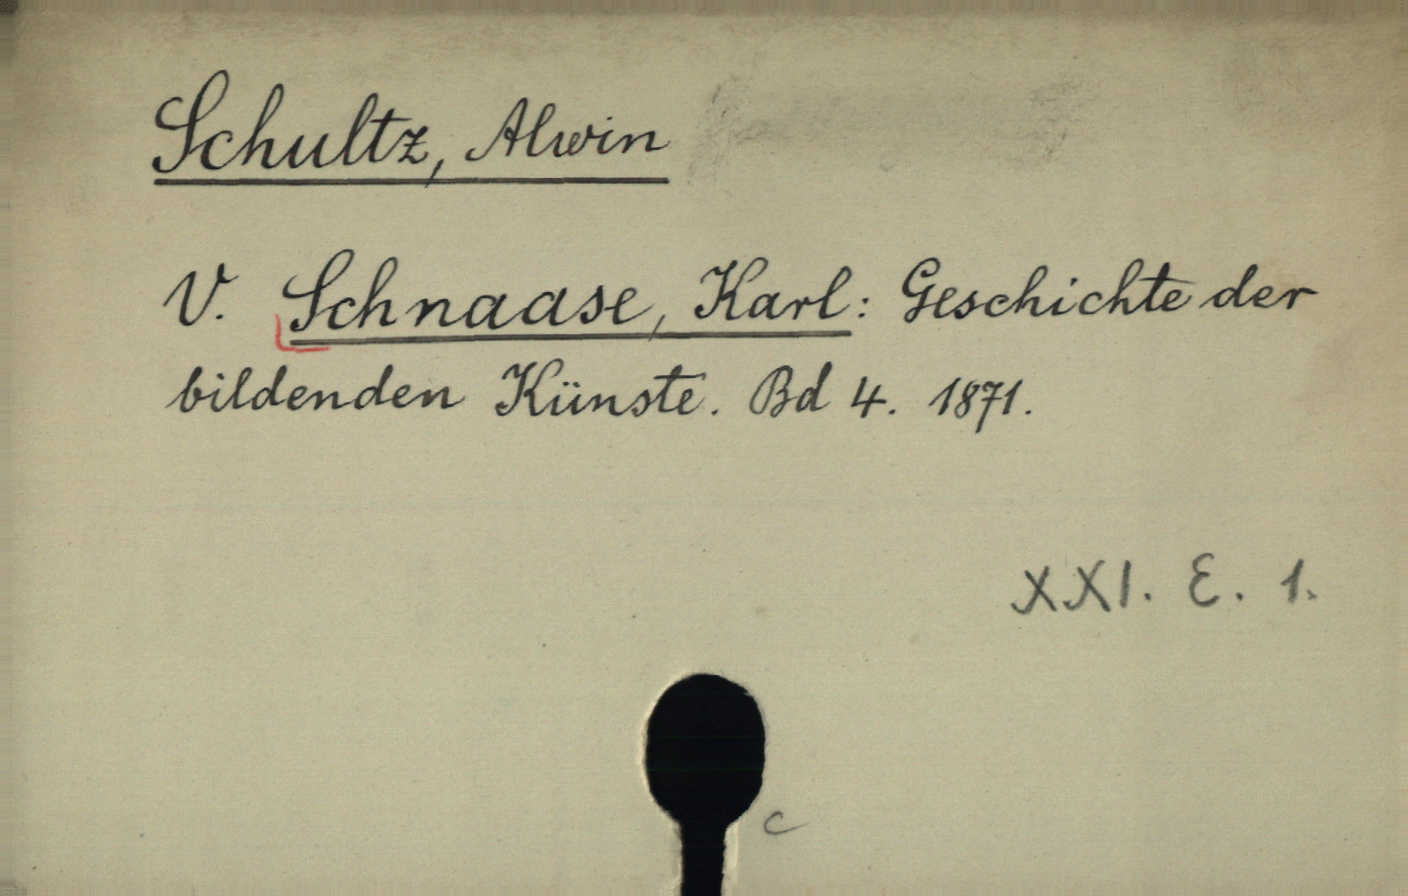 Schultz, Alwin
V. Schnaase, Karl: Geschichte der
bildenden Künste. Bd 4. 1871.
XXI. E. 1.
c